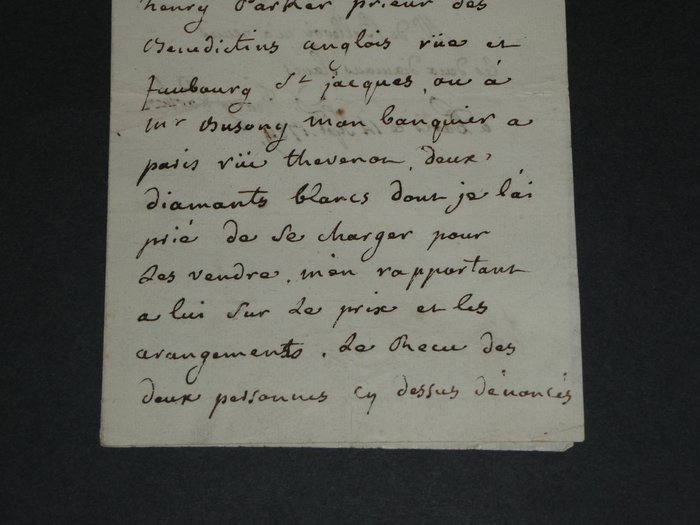 henry Parker prieur des
Benedictins anglois rüe et
faubourg St jacques, ou à
mr Busony mon banquier a
paris rüe thevenot, deux
diamants blancs dont je l'ai
prié de se charger pour
les vendre, m'en rapportant
a lui sur le prix et les
arangements. Le Recu des
deux personnes cy dessus dénoncés